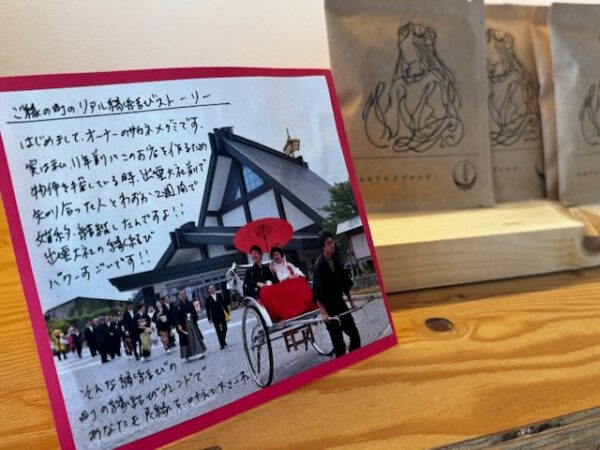 ご縁の町のリアル縁結びストーリー
はじめまして、オーナーのサカネメグミです
実は私、11年前にこのお店を作るため
物件を探している時、出雲大社前で
知り合った人とわずか2週間で
婚約、結婚したんですよ!!
出雲大社の縁結び
パワーすごいです!!
そんな縁結びの
町の縁結びブレンドで
あなたも良縁を叶えて下さいネ